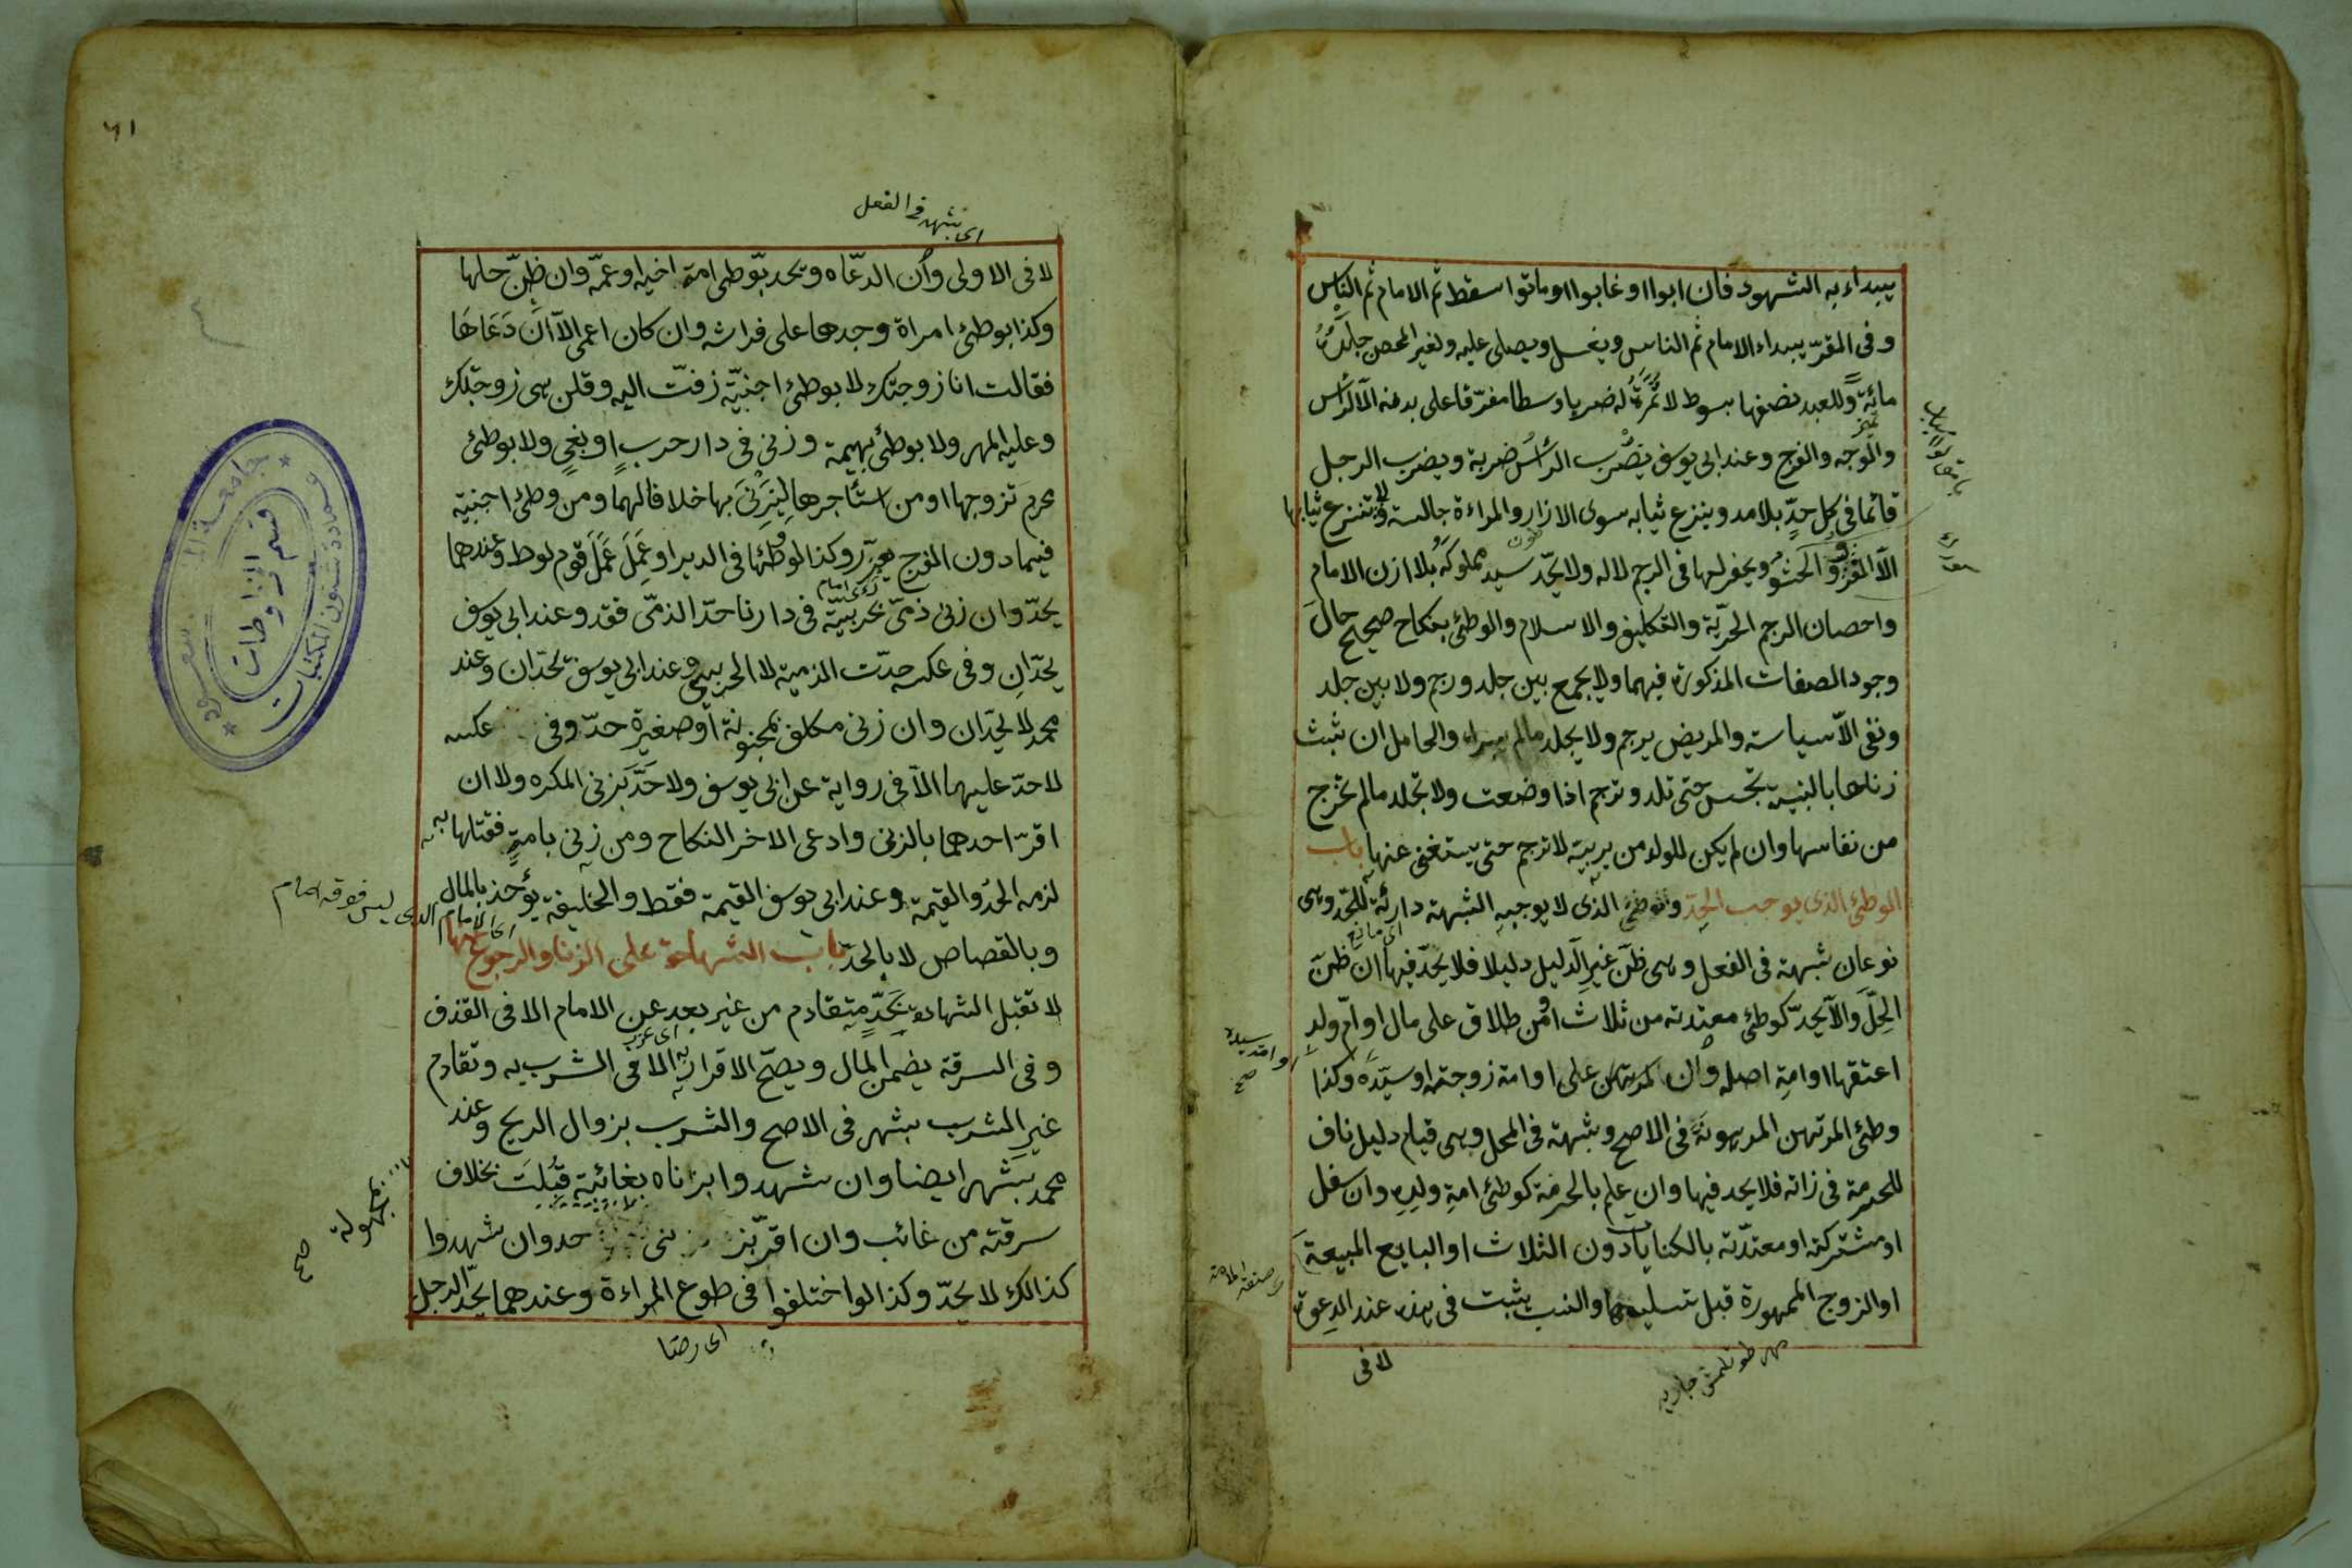 يبداء به الشهود فان ابوا او غابوا او ماتوا سقط ثم الامام ثم الناس
وفى المقرّ يبداء الامام ثم الناس ويغسل ويصلى عليه ولغير المحصن جلده
مائة وللعبد نصفها بسوط لا ثمرة له ضربا وسطا مفرّقا على بدنه الا الرأس
والوجه والفرج وعند ابى يوسف يضرب الرأس ضربة ويضرب الرجل
قائما فى كل حدّ بلا مد وينزع ثيابه سوى الازار والمراءة جالسة ولا تنزع ثيابها
الا الفرو والحشو ويحفر لها فى الرجم لا له ولا يحدّ سيد مملوكه بلا اذن الامام
واحصان الرجم الحريّة والتكليف والاسلام والوطئ بنكاح صحيح حال
وجود الصفات المذكورة فيهما ولا يجمع بين جلد ورجم ولا بين جلد
ونفى الاّ سياسة والمريض يرجم ولا يجلد مالم يبراء والحامل ان ثبت
زناها بالبينة تحبس حتى تلد وترجم اذا وضعت ولا تجلد مالم تخرج
من نفاسها وان لم يكن للولد من يربيه لا ترجم حتى يستغنى عنها باب
الوطئ الذى يوجب الحدّ والذى لا يوجبه الشبهة دارئة للحدّ وهى
اى مانع
نوعان شبهة فى الفعل وهى ظنّ غير الدليل دليلا فلا يحدّ فيها ان ظنّ
الحلّ والاّ يحدّ كوطئ معتدته من ثلاث او من طلاق على مال او امّ ولد
اعتقها او امة اصله وان علا او امة زوجته او سيّده وكذا
وطئ المرتهن المرهونة فى الاصح وشبهة فى المحل وهى قيام دليل ناف
للحرمة فى ذاته فلا يحد فيها وان علم بالحرمة كوطئ امة ولده وان سفل
او مشتركته او معتدّته بالكنايات دون الثلاث او البايع المبيعة
او الزوج الممهورة قبل تسليمها والنسب يثبت فى هذه عند الدعوة
لا فى
٦١
اى شبهة فى الفعل
لا فى الاولى وان الدعّاه ويحد بوطئ امة اخيه او عمّه وان ظنّ حلها
وكذا بوطئ امراة وجدها على فراشه وان كان اعمى الاّ ان دعاها
فقالت انا زوجتك لا بوطئ اجنبيّة زفّت اليه وقلن هى زوجتك
وعليه المهر ولا بوطئ بهيمة وزنى فى دار حرب او بغى ولا بوطئ
محرم تزوجها او من استأجرها ليزنى بها خلافا لهما ومن وطئ اجنبية
فيما دون الفرج يعزّر وكذا لو وطئها فى الدبر او عمل عمل قوم لوط وعندهما
يحدّ وان زنى ذمّى بحربيّة فى دارنا حدّ الذمّى فقد وعند ابى يوسف
يحدّان وفى عكسه حدّت الذمية لا الحربى وعند ابى يوسف يحدّان وعند
محمد لا يحدّان وان زنى مكلف بمجنونة او صغيرة حدّ وفى عكسه
لا حدّ عليهما الاّ فى رواية عن ابى يوسف ولا حدّ بزنى المكره ولا ان
اقرّ احدهما بالزنى وادعى الاخر النكاح ومن زنى بامة فقتلها به
لزمه الحد والقيمة وعند ابى يوسف القيمة فقط والخليفة يؤخذ بالمال
اى الامام الذى ليس فوقه امام
وبالقصاص لا بالحدّ باب الشهادة على الزنا والرجوع عنها
لا تقبل الشهادة بحدّ متقادم من غير بعد عن الامام الا فى القذف
وفى السرقة يضمن المال ويصحّ الاقرار به الا فى الشرب به وتقادم
غير الشرب بشهر فى الاصح والشرب بزوال الريح وعند
محمد بشهر ايضا وان شهدوا بزناه بغائبة قبلت بخلاف
سرقته من غائب وان اقرّ بزنى حد وان شهدوا
بمجهولة صح
كذالك لا يحدّ وكذا لو اختلفوا فى طوع المراءة وعندهما يحدّ الرجل
اى رضا
قسم المخطوطات
عمادة شئون المكتبات